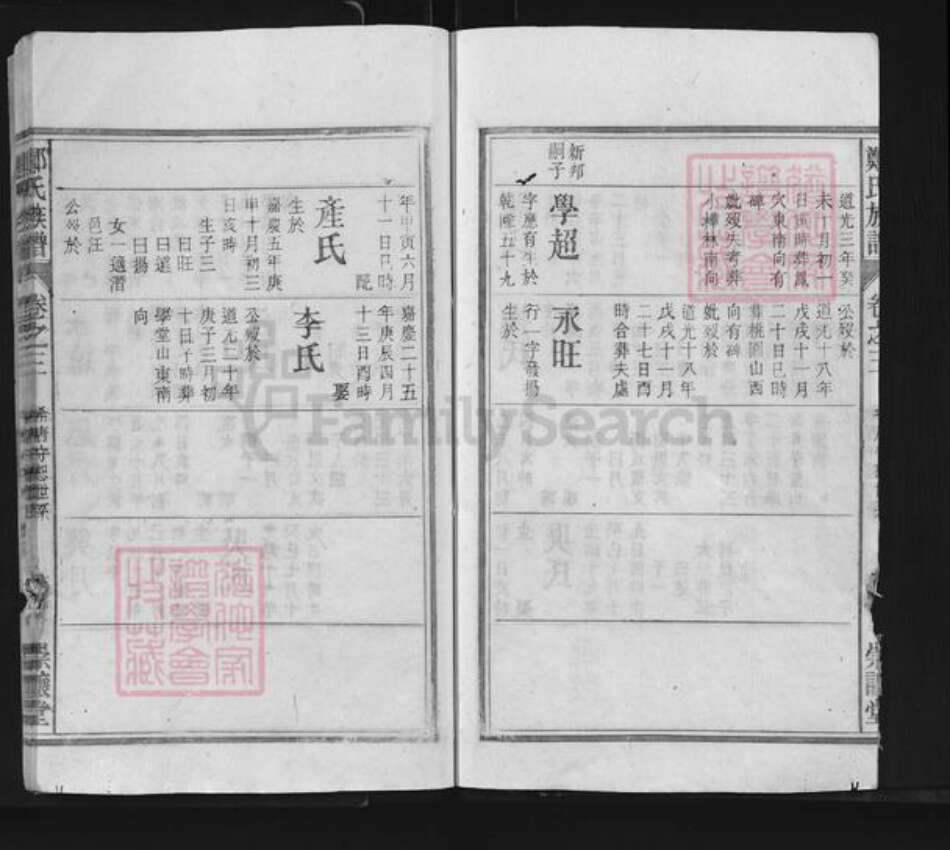 鄭氏族譜
卷之三
崇讓堂
道光三年癸
未十月初一
日 時葬鳳
穴東南向有
碑
妣歿失考葬
小樟林南向
新邦
嗣子
學超
字應有生於
乾隆五十九
公歿於
道光十八年
戊戌十一月
二十日巳時
葬桃園山西
向有碑
妣歿於
道光十八年
戊戌十一月
二十七日酉
時合葬夫處
永旺
行一字發揚
生於
年甲寅六月
十一日巳時
配
產氏
生於
嘉慶五年庚
申十月初三
日亥時
生子三
曰旺
曰道
曰揚
女一適潛
邑汪
公歿於
嘉慶二十五
年庚辰四月
十三日酉時
娶
李氏
公歿於
道光二十年
庚子三月初
十日子時葬
學堂山東南
向
鄭氏族譜
卷之三
希 守恕世系
崇讓堂
FamilySearch